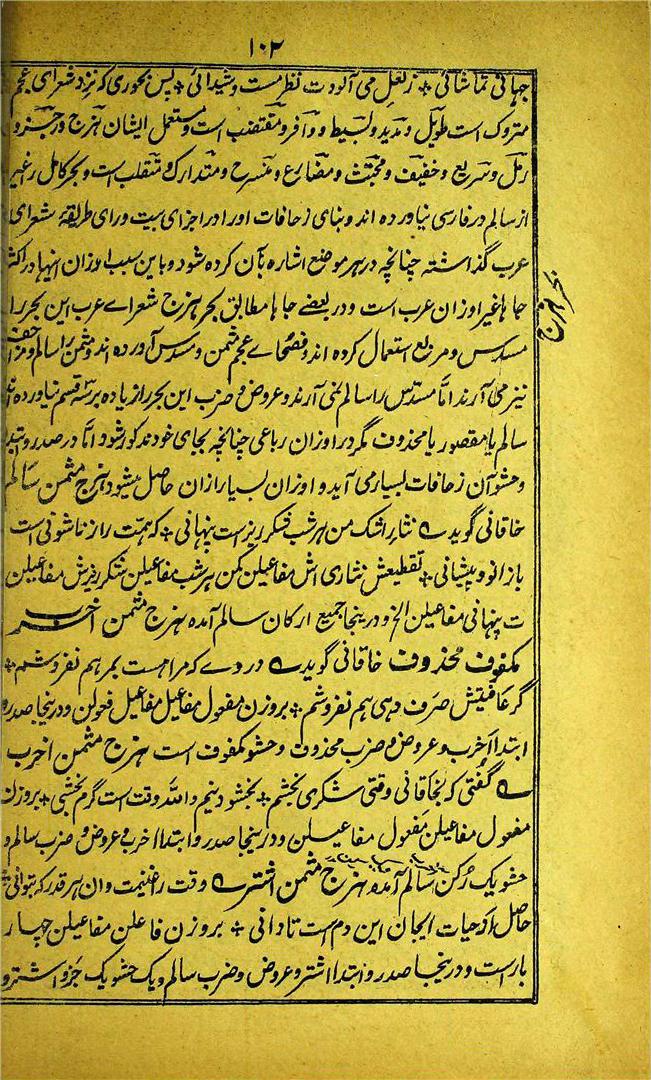 ۱۰۲
جهانی تماشائی ؞ ز لعل می آلودت نظر مست و شیدائی ؞ پس بحوری که نزد شعرای عجم
متروک است طویل و مدید و بسیط و وافر و مقتضب است و مستعمل ایشان هزج و رجز و
رمل و سریع و خفیف و مجتث و مضارع و منسرح و متدارک و متقارب است و بحر کامل را غیر
از سالم در فارسی نیاورده اند و بنای زحافات او را در اجزای بیت ورای طریقهٔ شعرای
عرب گذاشته چنانچه در هر موضع اشاره بآن کرده شود و باین سبب اوزان اینها در اکثر
جاها غیر اوزان عرب است و در بعضے جاها مطابق بحر هزج شعراے عرب این بحر را
بحر هزج
مسدس و مربع استعمال کرده اند و فصحاے عجم مثمن و مسدس آورده اند و مثمن را سالم و مزاحف
نیز می آرند اما مسدس را سالم نمی آرند و عروض و ضرب این بحر زیاده بر سه قسم نیاورده اند
سالم یا مقصور یا محذوف مگر در اوزان رباعی چنانچه بجای خود مذکور شود اما در صدر و ابتدا
و حشو آن زحافات بسیار می آید و اوزان بسیار ازان حاصل میشود هزج مثمن سالم
خاقانی گوید ے نثار اشک من هر شب شکر ریز است پنهانی ؞ که همت را زناشوئی است
با زانو و پیشانی ؞ تقطیعش نثاری اش مفاعیلن کمن هر شب مفاعیلن شکر ریزس مفاعیلن
ت پنهانی مفاعیلن الخ و درینجا جمیع ارکان سالم آمده هزج مثمن اخرب
مکفوف محذوف خاقانی گوید ے دردے که مرا هست بمرهم نفروشم ؞
گر عافیتش صرف دهی هم نفروشم ؞ بروزن مفعول مفاعیل مفاعیل فعولن و درینجا صدر و
ابتدا اخرب و عروض و ضرب محذوف و حشو مکفوف است هزج مثمن اخرب
ے گفتی که بخاقانی وقتی شکری بخشم ؞ بخشودنیم والله وقت است گرم بخشی ؞ بروزن
مفعول مفاعیلن مفعول مفاعیلن و درینجا صدر و ابتدا اخرب و عروض و ضرب سالم و
حشو یک رکن سالم آمده هزج مثمن اشتر ے وقت را غنیمت دان هر قدر که بتوانی ؞
حاصل از حیات ایجان این دم است تا دانی ؞ بروزن فاعلن مفاعیلن چهار
بار است و درینجا صدر و ابتدا اشتر و عروض و ضرب سالم و یک حشو یک جزو اشتر و